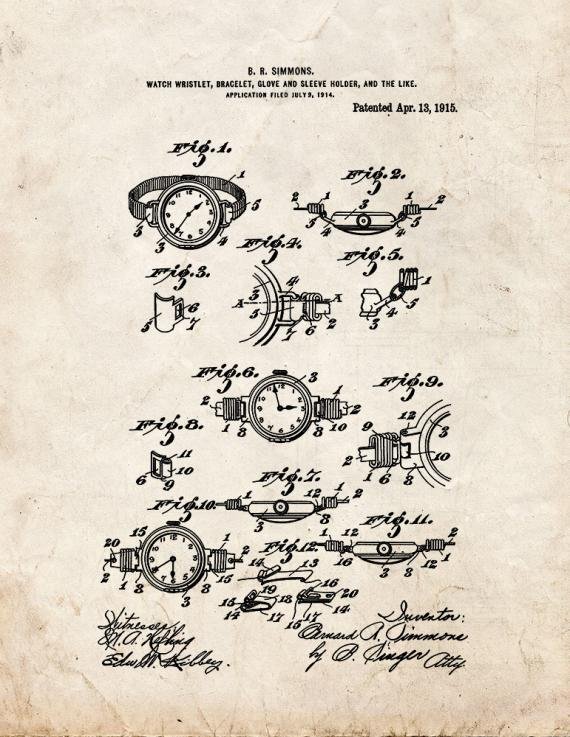 B. R. SIMMONS.
WATCH WRISTLET, BRACELET, GLOVE AND SLEEVE HOLDER, AND THE LIKE.
APPLICATION FILED JULY 9, 1914.
Patented Apr. 13, 1915.
Fig. 1.
1
5
5
3
4
Fig. 2.
2 1 3 1 2
5 4 4 5
Fig. 3.
6
5 7
Fig. 4.
3 4
A A
5
7 6 2
Fig. 5.
1
3 4 5
Fig. 6.
3
2 1 2
1 8 8 10
Fig. 8.
11
10
6 9
Fig. 9.
12
9 3
2 10
1 6 8
Fig. 7.
1 12 1 2
3 8
Fig. 10.
15
20 1 2
2
1 8 8 15
3
Fig. 11.
1 2
16 3 8 12 1
Fig. 12.
14 13
16
19 18 20
15
14 17 15 17 14
Witnesses
Inventor:
Simmons
by B. Singer Atty.